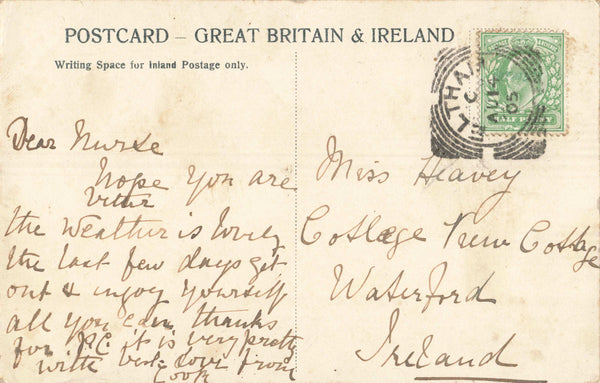 POSTCARD – GREAT BRITAIN & IRELAND
Writing Space for Inland Postage only.
ELTHAM
C
AU 14
05
HALF PENNY
Dear Nurse
hope you are
better
the weather is lovely
the last few days get
out & injoy yourself
all you can thanks
for P.C it is very pretty
with best love from
Cook
Miss Heavey
College View Cottage
Waterford
Ireland